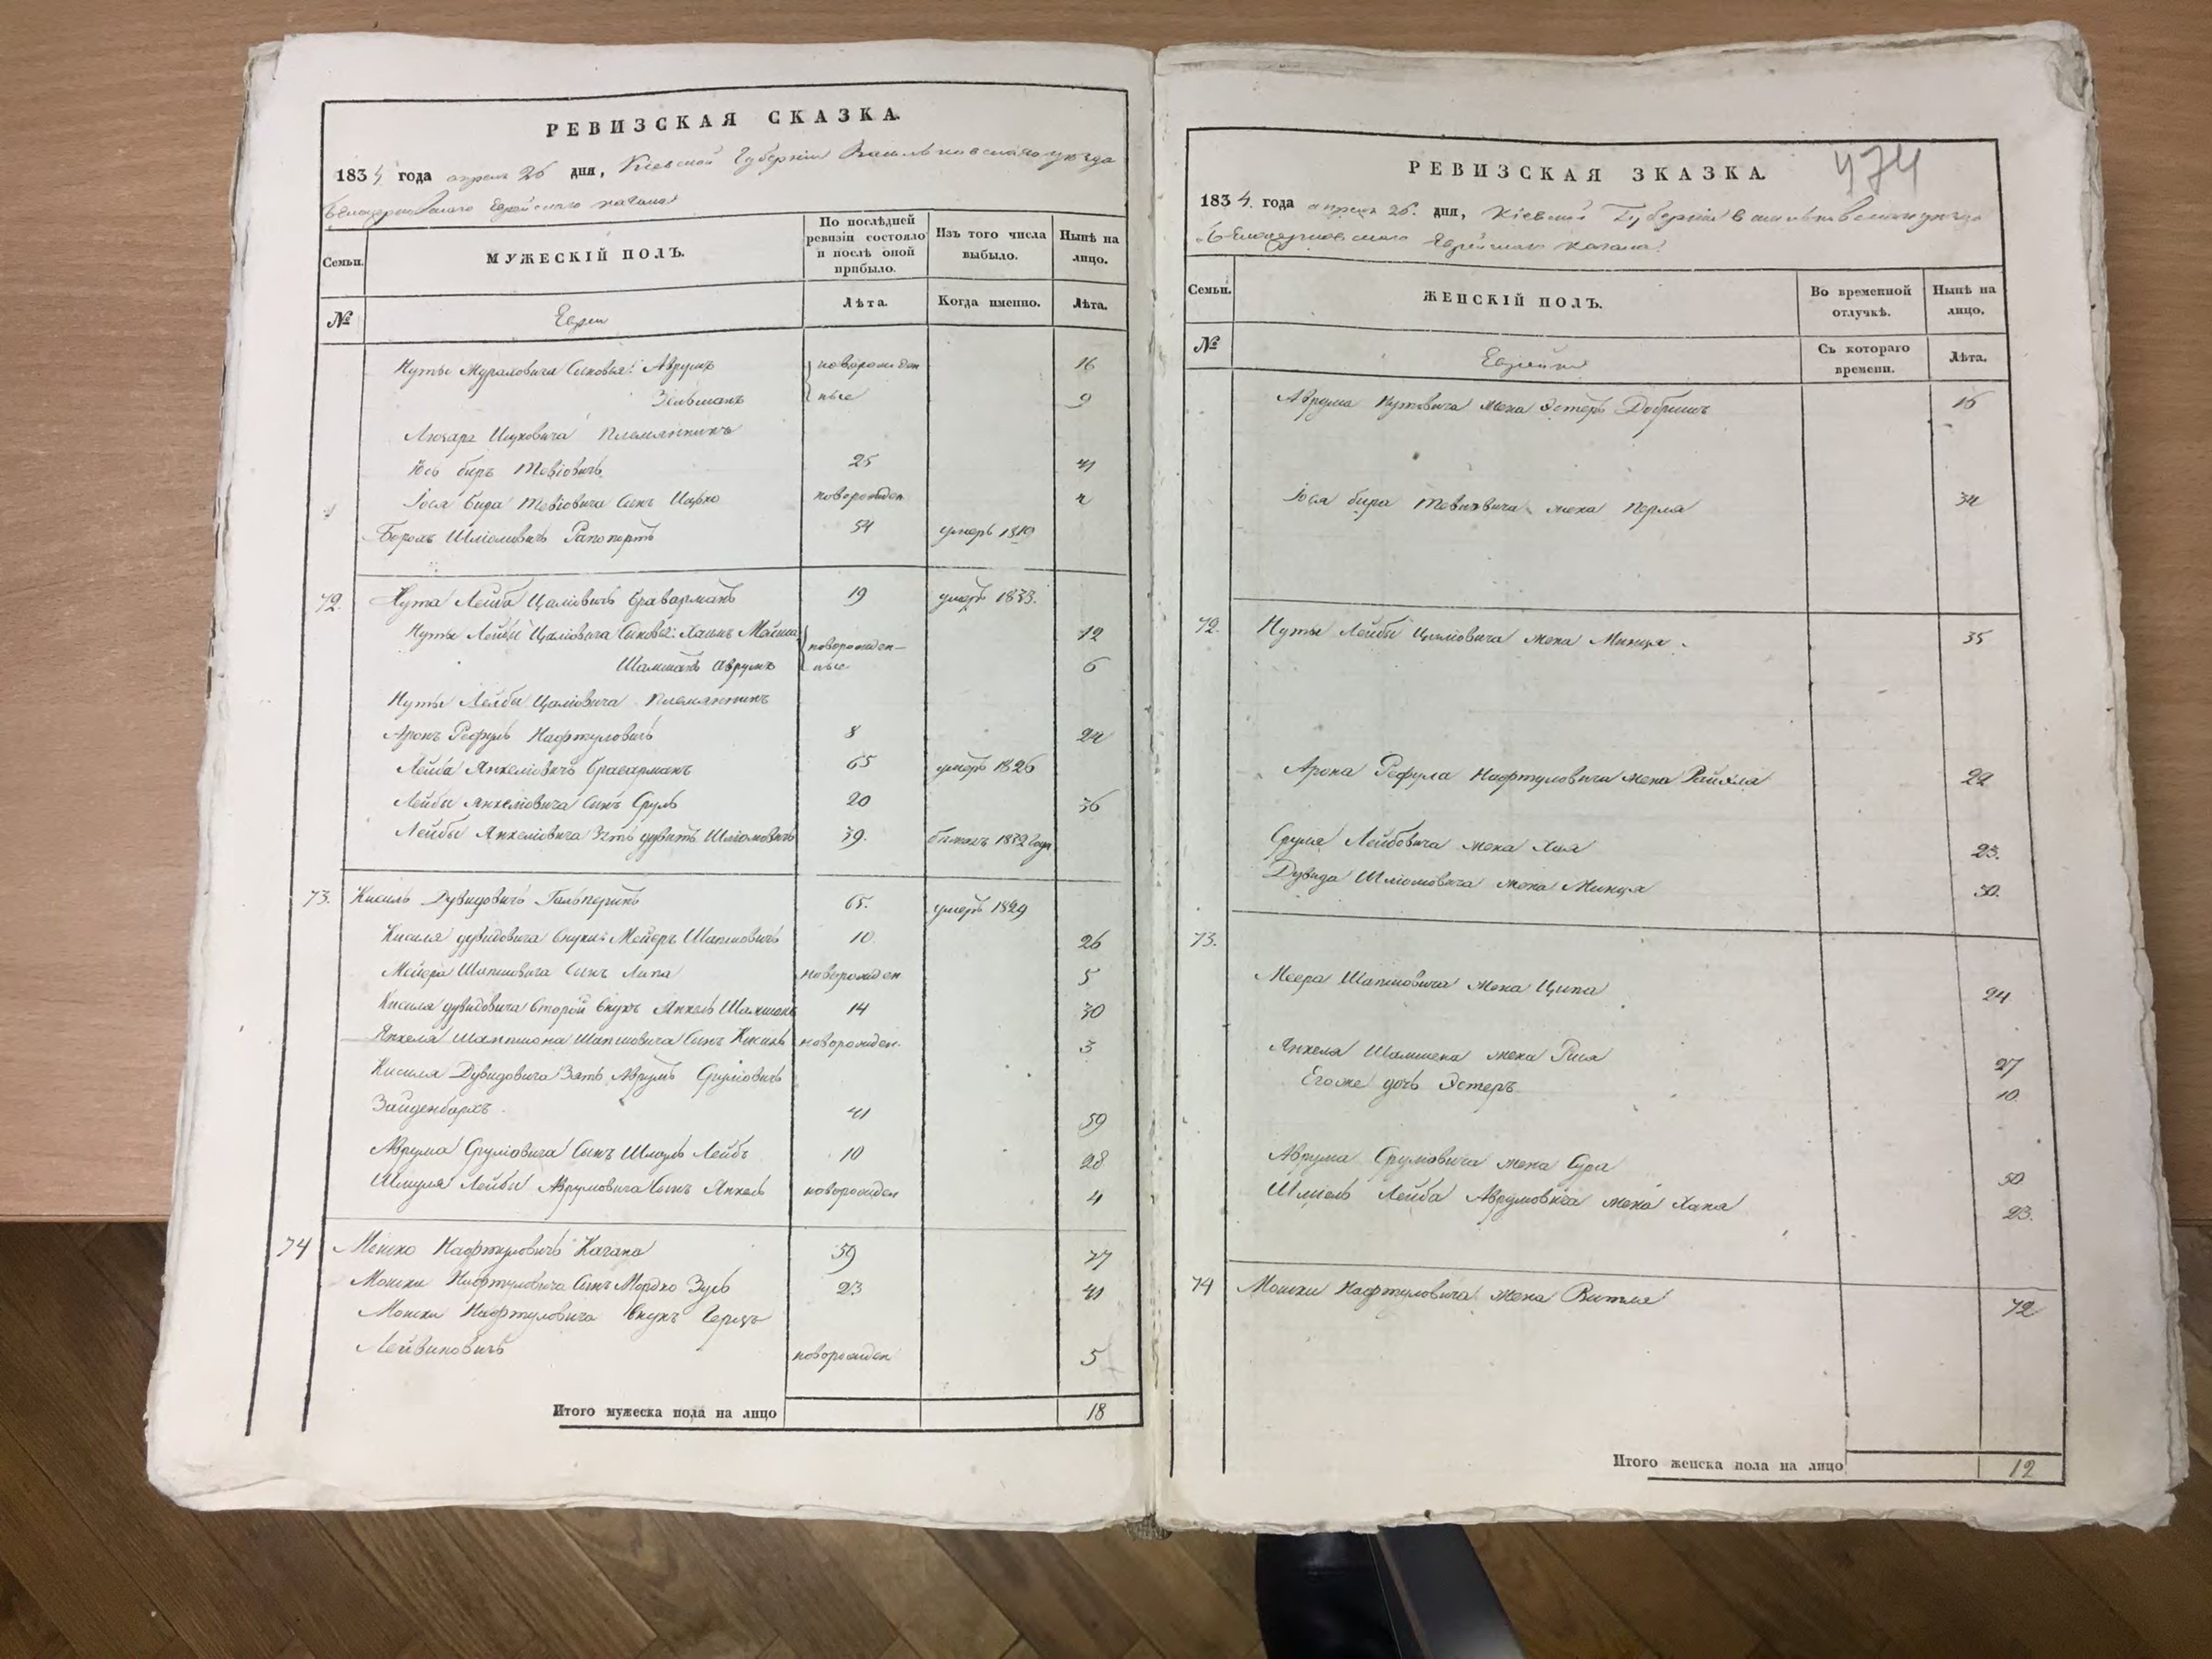 РЕВИЗСКАЯ СКАЗКА.
1834 года апреля 26 дня, Кіевской Губерніи Васильковскаго уезда
Белоцерковскаго Еврейскаго кагала
Семьи.
МУЖЕСКІЙ ПОЛЪ.
По послѣдней ревизіи состояло и послѣ оной прибыло.
Изъ того числа выбыло.
Нынѣ на лицо.
№
Евреи
Лѣта.
Когда именно.
Лѣта.
Нуты Сыновья: Аврумъ новорожден 16
Зельманъ ные 9
Ицковича Племянникъ
Іось беръ Тевіовичъ 25 41
Іося бера Тевіовича Сынъ Ицко новорожден 4
Шліомовичъ Рапопортъ 54 умеръ 1819
72. Нута Лейба Цаліовичъ Браварманъ 19 умеръ 1833.
Нуты Лейбы Цаліовича Сыновья: Хаимъ Мошка новорожден- 12
Шамшонъ Аврумъ ные 6
Нуты Лейбы Цаліовича Племянникъ
Аронъ Рефулъ Нафтуловичъ 8 24
Лейба Янкеліовичъ Браварманъ 65 умеръ 1826
Лейбы Янкеліовича Сынъ Сруль 20 36
Лейбы Янкеліовича Зять дувидъ Шліомовичъ 39. 1832 года
73. Кисиль Дувидовичъ Гальперинъ 65. умеръ 1829
Кисиля дувидовича Внуки: Мейеръ Шапшовичъ 10. 26
Мейера Шапшовича Сынъ Липа новорожден 5
Кисиля дувидовича Второй Внукъ Янкель Шамшонъ 14 30
Янкеля Шамшона Шапшовича Сынъ Кисиль новорожден. 3
Кисиля Дувидовича Зять Аврумъ Сруліовичъ
Зайденбархъ 41 59
Аврума Сруліовича Сынъ Шмуль Лейбъ 10 28
Шмуля Лейбы Аврумовича Сынъ Янкель новорожден 4
74 Мошко Нафтуловичъ Кагана 59 77
Мошки Нафтуловича Сынъ Мордко Зусь 23 41
Мошки Нафтуловича Внукъ Герцъ
Лейвиковичъ новорожден 5
Итого мужеска пола на лицо 18
474
РЕВИЗСКАЯ ЗКАЗКА.
1834. года апреля 26. дня, Кіевской Губерніи Васильковскаго уезда
Белоцерковскаго Еврейскаго кагала
Семьи.
ЖЕНСКІЙ ПОЛЪ.
Во временной отлучкѣ.
Нынѣ на лицо.
№
Еврейки
Съ котораго времени.
Лѣта.
Аврума Нутовича жена Эстеръ Добришъ 16
Іося бера Тевіовича жена Перля 34
72. Нуты Лейбы Цаліовича жена Минця 35
Арона Рефула Нафтуловича жена Райхля 22
Сруля Лейбовича жена Хая 23.
Дувида Шліомовича жена Минця 30.
73.
Меера Шапшовича жена Ципа 24
Янкеля Шамшона жена Рися 27
Его же дочь Эстеръ 10.
Аврума Сруліовича жена Сура 50
Шміель Лейба Аврумовича жена Хана 23.
74 Мошки Нафтуловича жена Витля 72
Итого женска пола на лицо 12